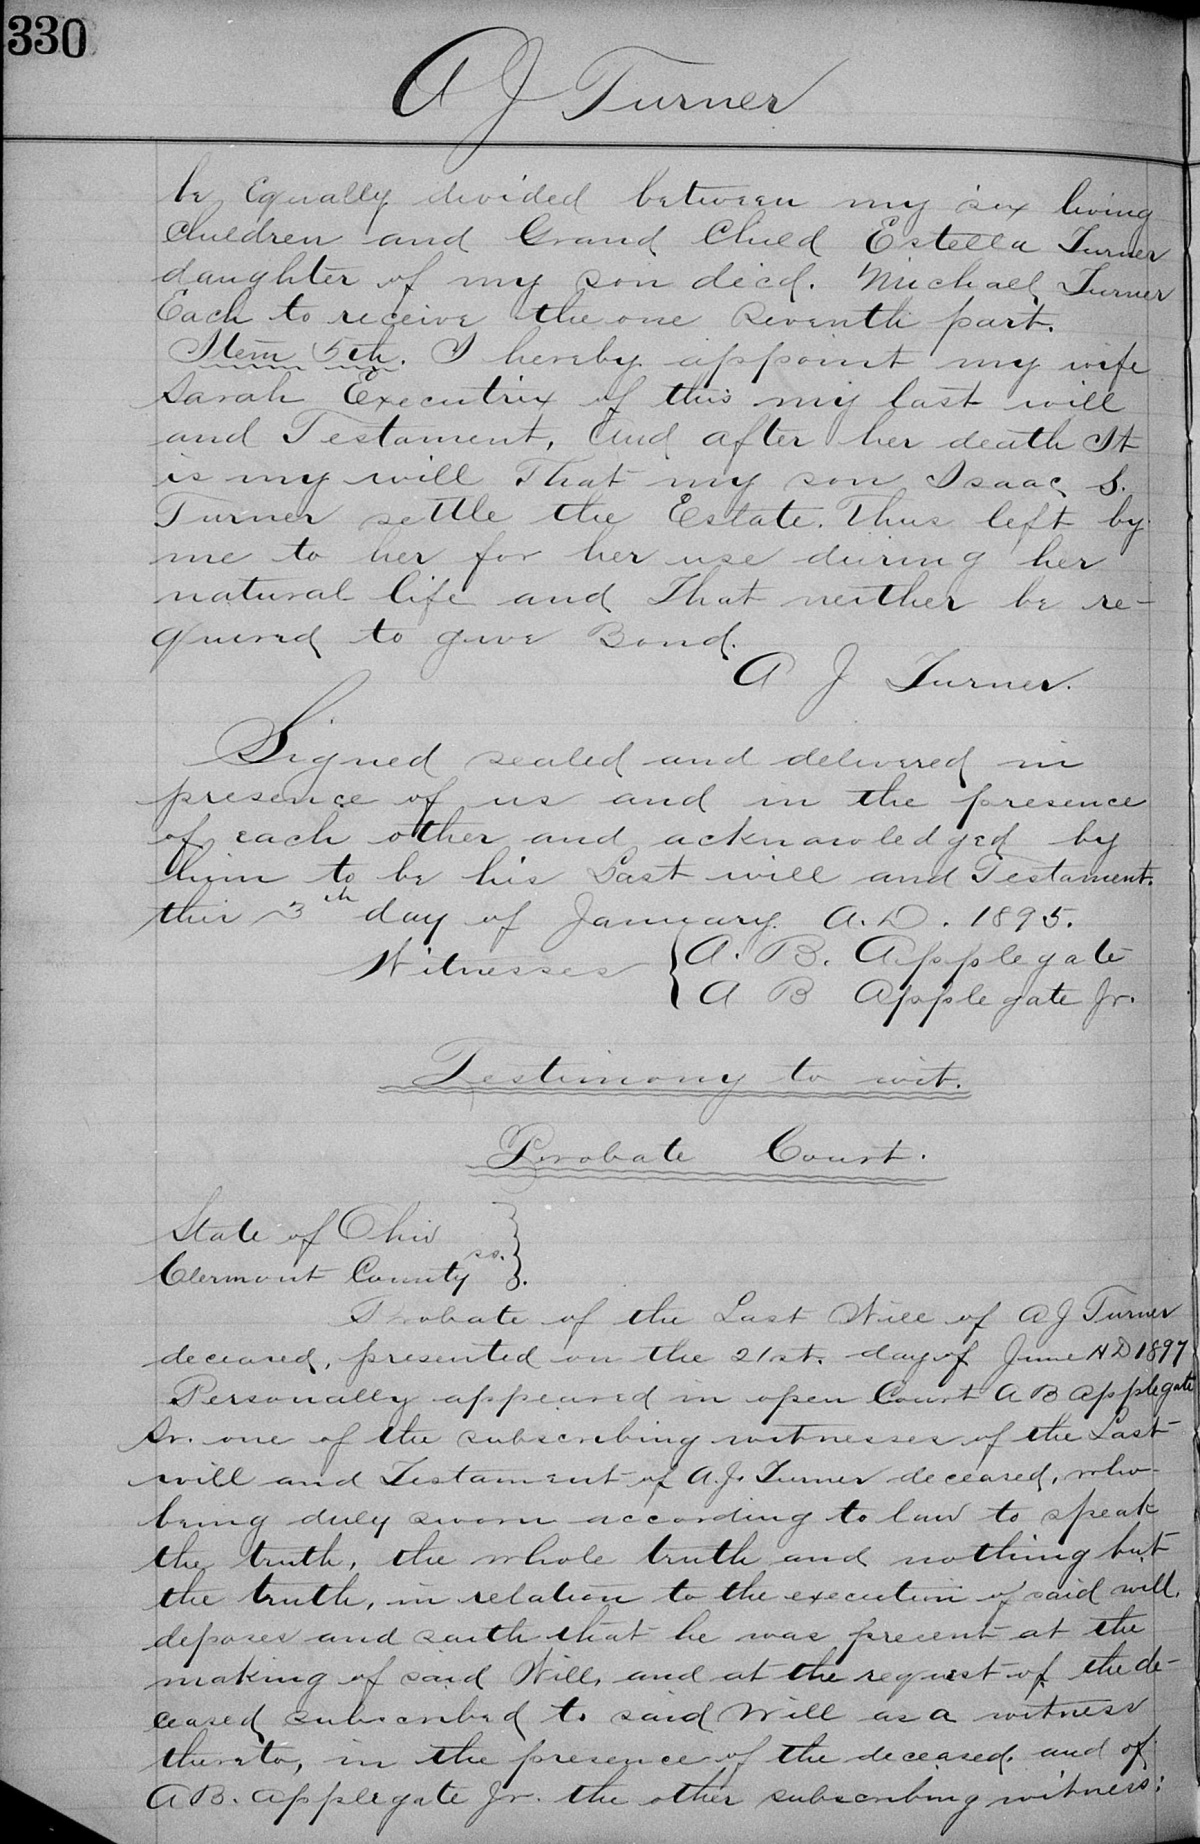 330
A J Turner
be Equally divided between my six living
Children and Grand Child Estella Turner
daughter of my son decd. Michael Turner
Each to receive the one Seventh part.
Item 5th. I hereby appoint my wife
Sarah Executrix of this my last will
and Testament, and after her death It
is my will That my son Isaac S.
Turner settle the Estate. Thus left by
me to her for her use during her
natural life and That neither be re-
quired to give Bond.
A J Turner.
Signed sealed and delivered in
presence of us and in the presence
of each other and acknowledged by
him to be his Last will and Testament.
this 3th day of January A.D. 1895.
Witnesses { A. B. Applegate
A B Applegate Jr.
Testimony to wit.
Probate Court.
State of Ohio }
Clermont County ss. }.
Probate of the Last Will of A J Turner
deceased, presented on the 21st. day of June A D 1897
Personally appeared in open Court A B Applegate
Sr. one of the subscribing witnesses of the Last
will and Testament of A. J. Turner deceased, who
being duly sworn according to law to speak
the truth, the whole truth and nothing but
the truth, in relation to the execution of said will,
deposes and saith that he was present at the
making of said Will, and at the request of the de-
ceased subscribed to said Will as a witness
thereto, in the presence of the deceased, and of
A B. Applegate Jr. the other subscribing witness: